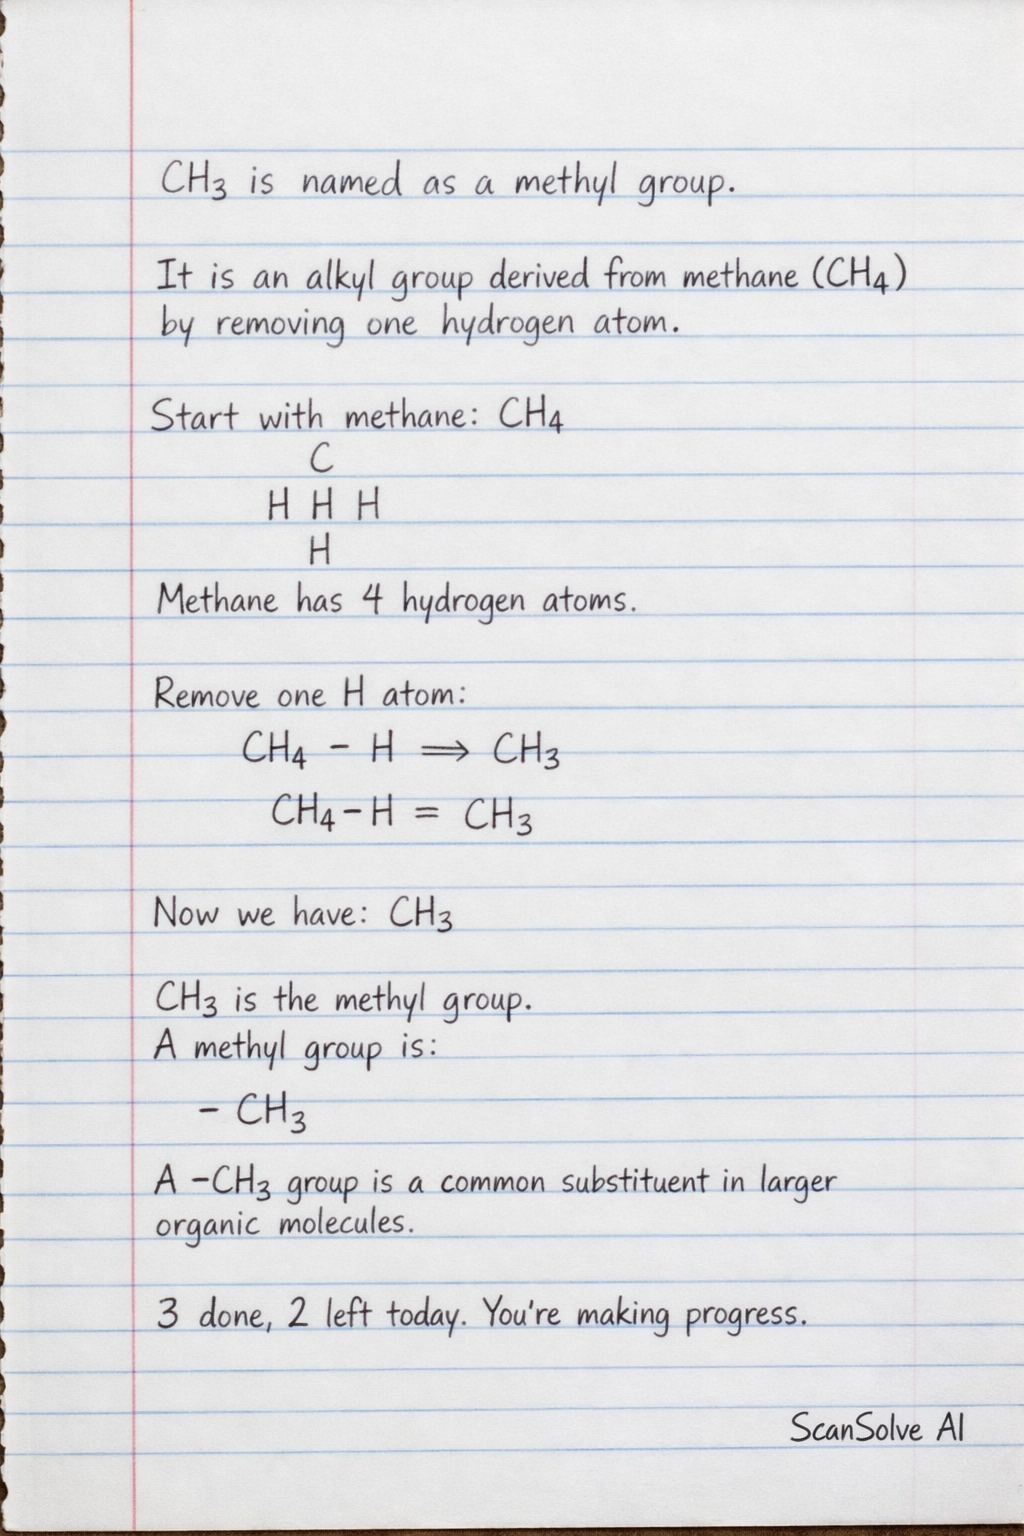 CH₃ is named as a methyl group.
It is an alkyl group derived from methane (CH₄)
by removing one hydrogen atom.
Start with methane: CH₄
C
H H H
H
Methane has 4 hydrogen atoms.
Remove one H atom:
CH₄ − H ⟹ CH₃
CH₄−H = CH₃
Now we have: CH₃
CH₃ is the methyl group.
A methyl group is:
− CH₃
A −CH₃ group is a common substituent in larger
organic molecules.
3 done, 2 left today. You're making progress.
ScanSolve AI